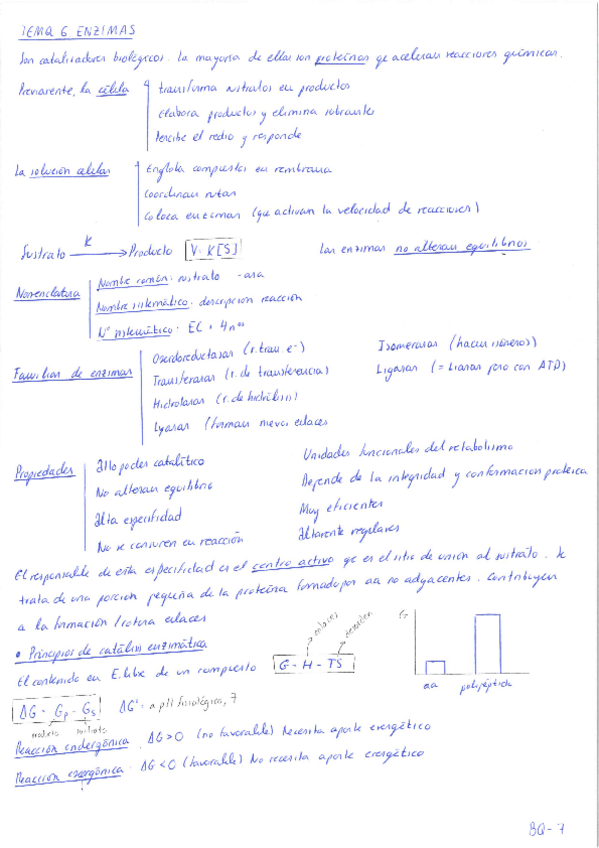 TEMA 6 ENZIMAS
Son catalizadores biológicos. La mayoría de ellas son proteínas qe aceleran reacciones químicas.
Previamente, la célula
transforma sustratos en productos
Elabora productos y elimina sobrantes
Percibe el medio y responde
La solución celular
Engloba compuestos en membrana
Coordinan rutas
Coloca enzimas (que activan la velocidad de reacciones)
Sustrato K Producto V = K[S] Las enzimas no alteran equilibrios
Nomenclatura
Nombre común: sustrato -asa
Nombre sistemático: descripción reacción
Nº sistemático: EC + 4 nos
Familias de enzimas
Oxidorreductasas (r. tran. e-)
Transferasas (r. de transferencia)
Hidrolasas (r. de hidrólisis)
Lyasas (forman nuevos enlaces
Isomerasas (hacen isómeros)
Ligasas (= Liasas pero con ATP)
Propiedades
Alto poder catalítico
No alteran equilibrio
Alta especificidad
No se consumen en reacción
Unidades funcionales del metabolismo
Depende de la integridad y conformación proteica
Muy eficientes
Altamente regulares
El responsable de esta especificidad es el centro activo qe es el sitio de unión al sustrato. Se
trata de una porción pequeña de la proteína formado por aa no adyacentes. Contribuyen
a la formación / rotura enlaces
• Principios de catálisis enzimática
El contenido en E. libre de un compuesto
enlaces desorden
G = H - TS
G
aa polipéptido
ΔG = Gp - Gs ΔG' = a pH fisiológico, 7
producto sustrato
Reacción endergónica. ΔG > 0 (no favorable) Necesita aporte energético
Reacción exergónica. ΔG < 0 (favorable) No necesita aporte energético
BQ-7